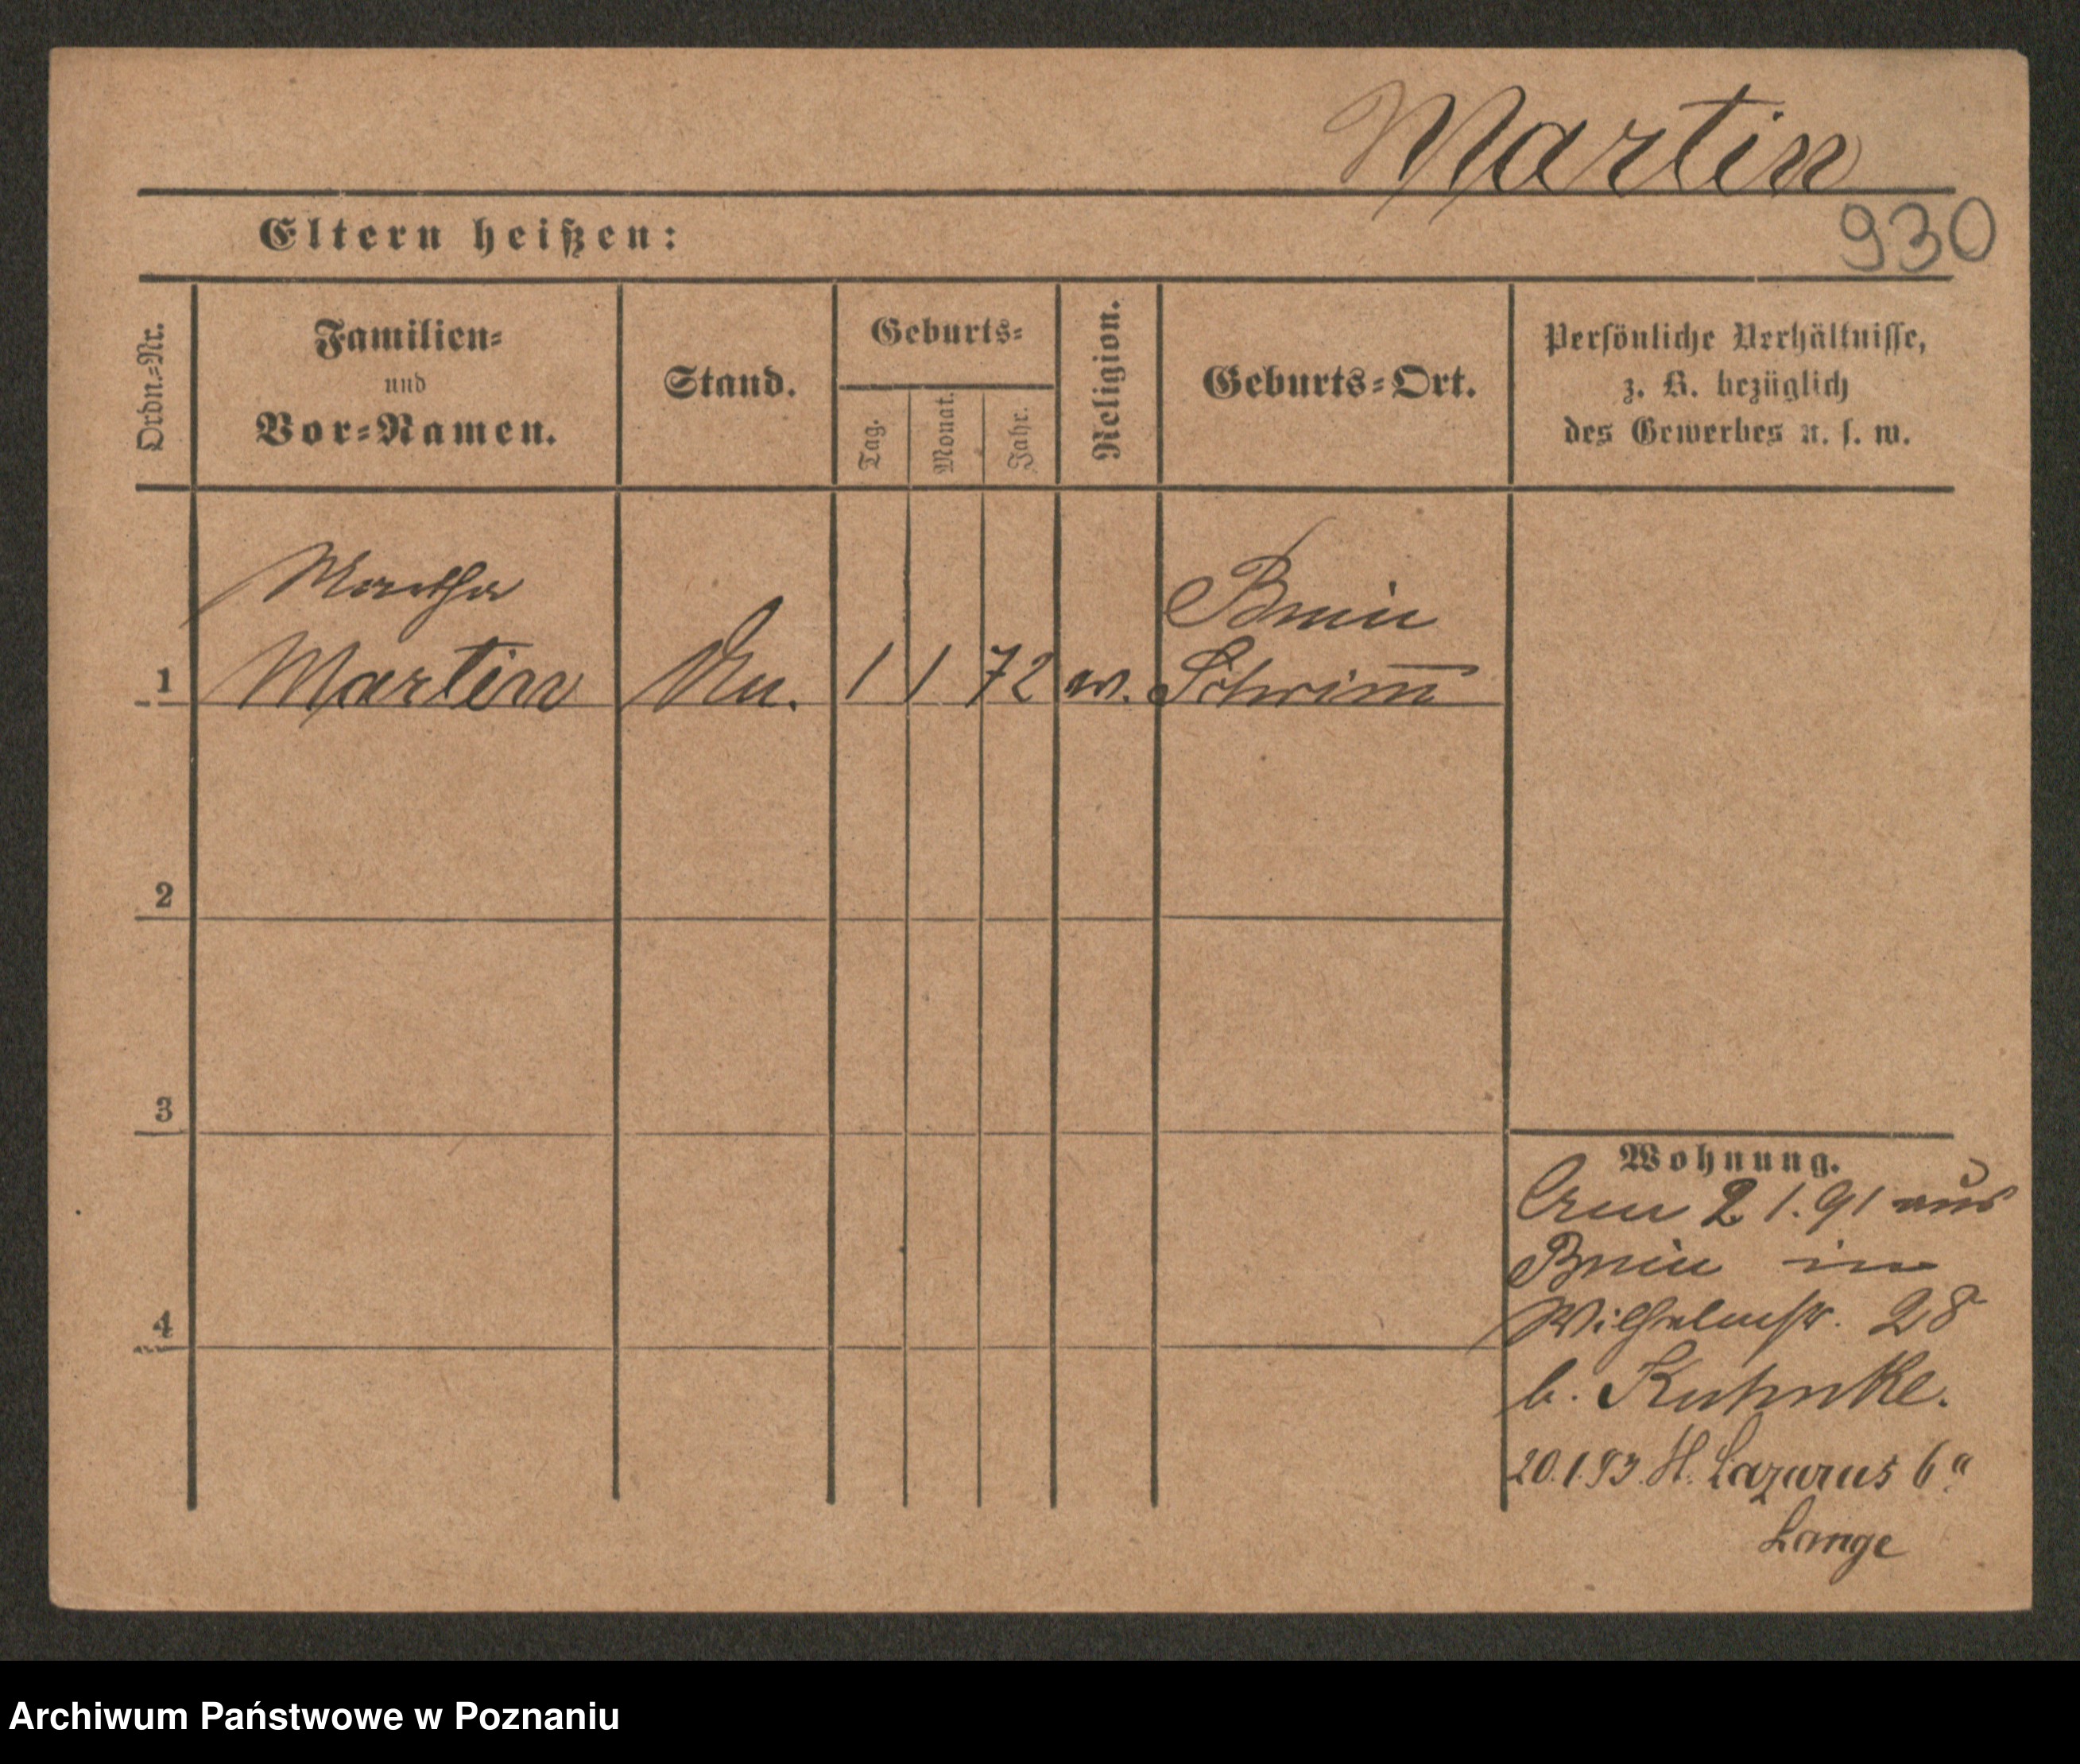 Martin
930
Eltern heißen:
Ordn.-Nr.
Familien-
und
Vor-Namen.
Stand.
Geburts-
Tag.
Monat.
Jahr.
Religion.
Geburts-Ort.
Persönliche Verhältnisse,
z. B. bezüglich
des Gewerbes u. s. w.
Martha
Martin
1
1
72
Bnin
Schrimm
1
2
3
4
Wohnung.
2 1. 91 aus
Bnin in
Wilhelmstr. 28
b. Kuhnke.
20.1.93. St. Lazarus 6a
Lange
Archiwum Państwowe w Poznaniu